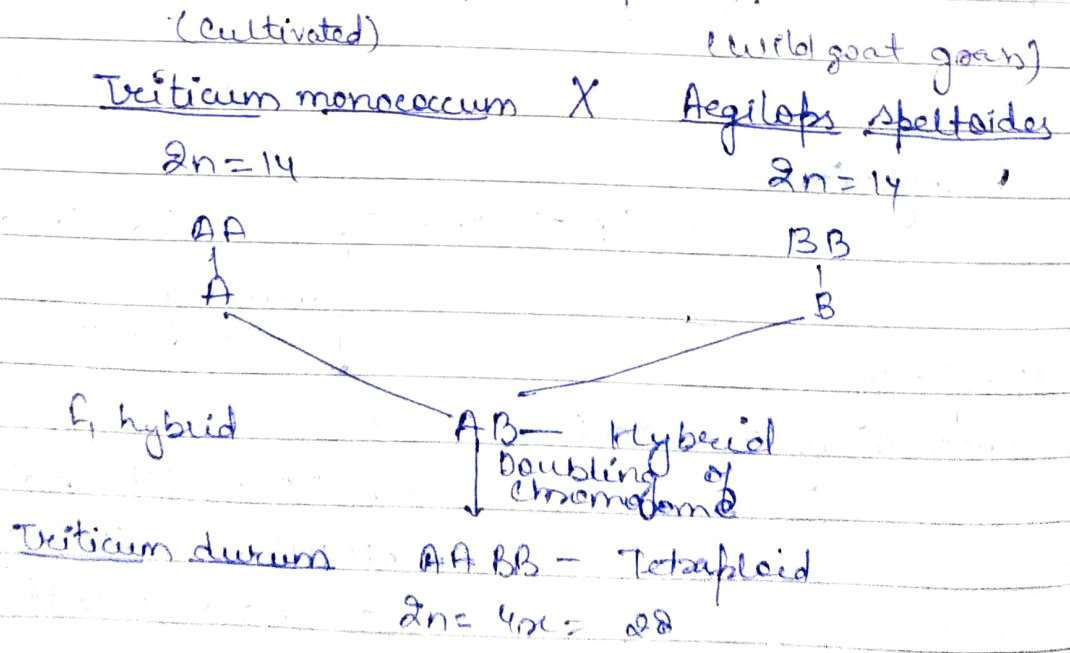 (Cultivated) (wild goat grass)
Triticum monococcum X Aegilops speltoides
2n=14 2n=14
AA BB
A B
F1 hybrid AB— Hybrid
Doubling of
Chromosome
Triticum durum AABB - Tetraploid
2n= 4x= 28